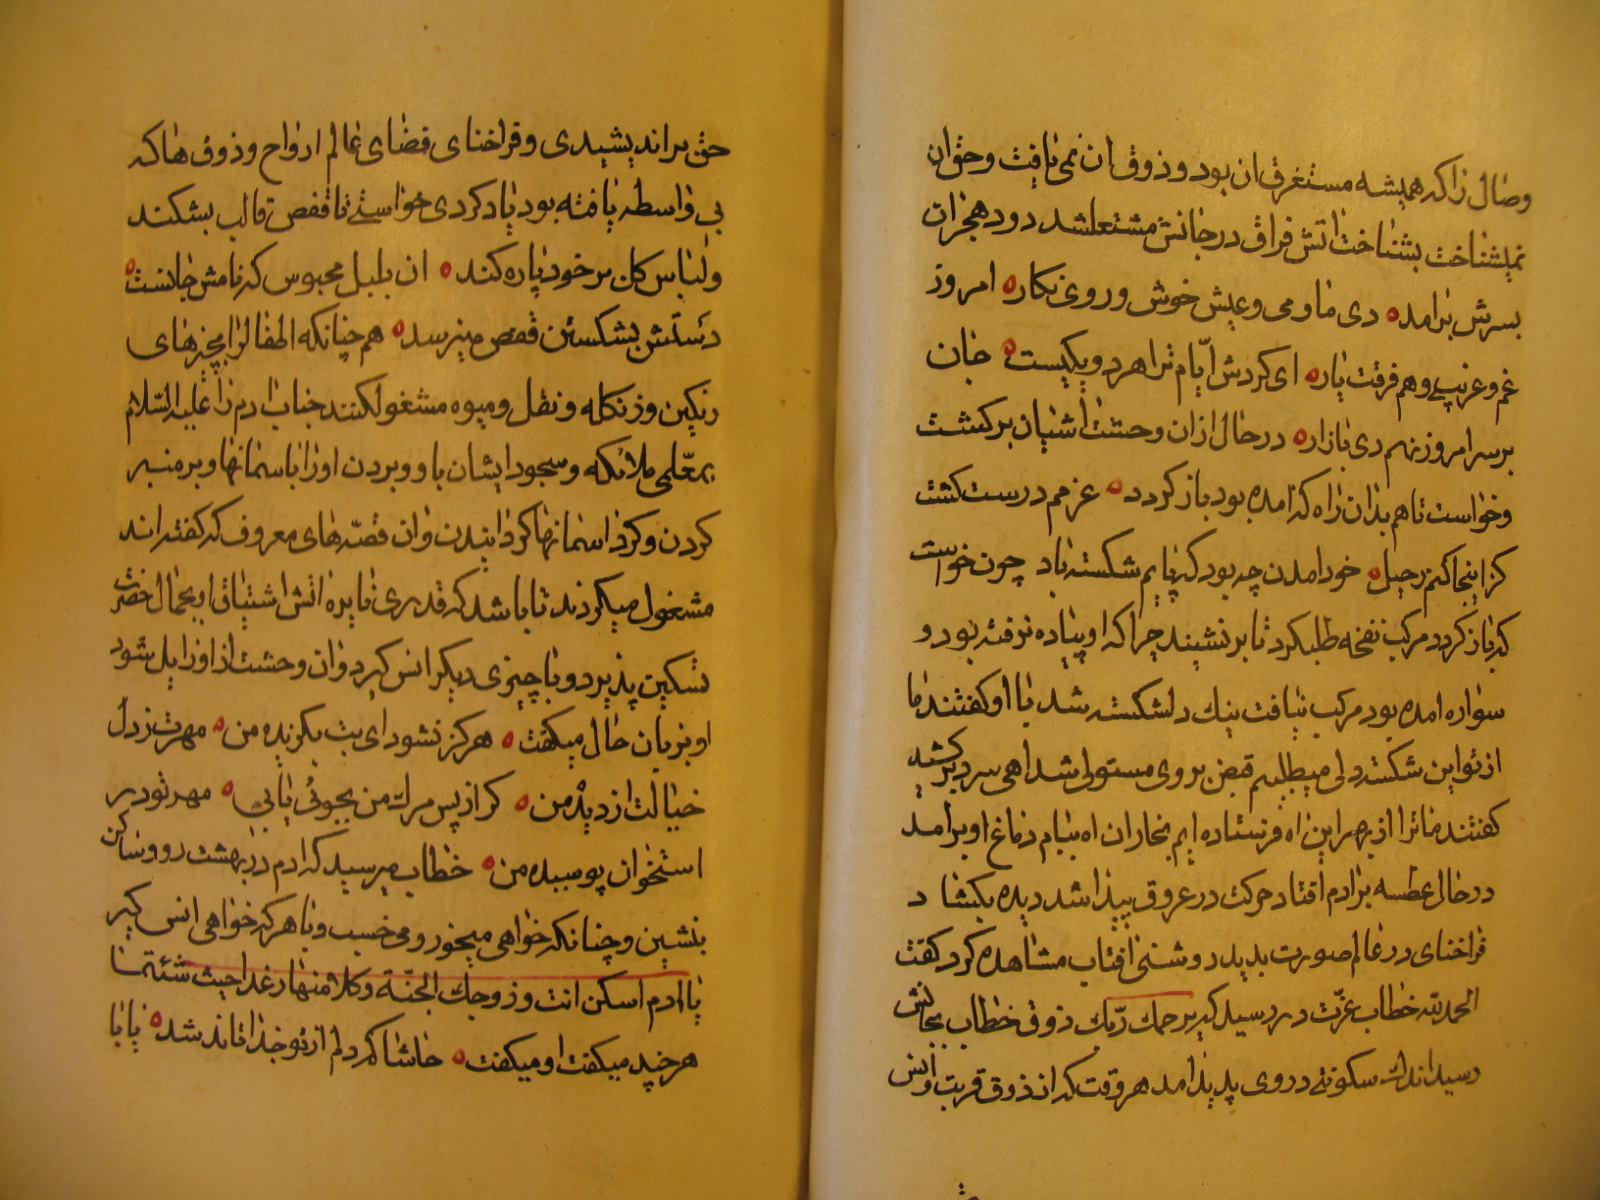 وصال را که همیشه مستغرق ان بود و ذوق ان نمی یافت و حق ان
نمیشناخت بشناخت اتش فراق در جانش مشتعل شد دود هجران
بسرش برامد دی ما و می و عیش خوش و روی نکار امروز
غم و غریبی و هم فرقت یار ای کردش ایّام ترا هر دو یکیست جان
بر سر امروز نهم دی باز ار در حال ازان وحشت اشیان برکشت
و خواست تا هم بدان راه که امده بود باز کردد عزمم درست کشت
کز اینجا کنم رحیل خود امدن چه بود که پایم شکسته باد چون خواست
که باز کردد مرکب نفخه طلب کرد تا بر نشیند چرا که او پیاده نرفته بود و
سواره امده بود مرکب نیافت نیك دلشکسته شد با او کفتند ما
از تو این شکسته دلی میطلبیم قبض بر وی مستولی شد اهی سرد برکشید
کفتند ما ترا از بهر این اه فرستاده ایم بخار ان اه ببام دماغ او برامد
در حال عطسه بر ادم افتاد حرکت در عروق پیدا شد دیده بکشاد
فراخنای در عالم صورت بدید روشنی افتاب مشاهده کرد کفت
الحمد لله خطاب عزّت در رسید که یرحمك ربّك ذوق خطاب بجانش
رسید اندك سکونتی در وی پدید امد هر وقت که از ذوق قربت و انس
حق بر اندیشیدی و فراخنای فضای عالم ارواح و ذوق ها که
بی واسطه یافته بود یاد کردی خواستی تا قفص قالب بشکند
و لباس کل بر خود پاره کند ان بلبل محبوس که نامش جانست
دستش بشکستن قفص مینرسد هم چنانکه اطفال را بچیزهای
رنکین و زنکله و نقل و میوه مشغول کنند جناب ادم را علیه السّلام
بمعلّمی ملائکه و سجود ایشان باو و بردن او را باسمانها و بر منبر
کردن و کرد اسمانها کردانیدن و ان قصّه های معروف که کفته اند
مشغول میکردند تا باشد که قدری نایره اتش اشتیاق او بجمال حضرت
تسکین پذیرد و با چیزی دیکر انس کیرد و ان وحشت از او زایل شود
او بزبان حال میکفت هرکز نشود ای بت بکزیده من مهرت ز دل
خیالت از دیده من کر از پس مرك من بجوئی یابی مهر تو در
استخوان پوسیده من خطاب میرسید که ادم در بهشت رو و ساکن
بنشین و چنانکه خواهی میخور و می خسب و با هر که خواهی انس کیر
یا ادم اسکن انت و زوجك الجنّة و کلا منها رغدا حیث شئتما
هر چند میکفت او میکفت حاشا که دلم از تو جدا تاند شد یا با